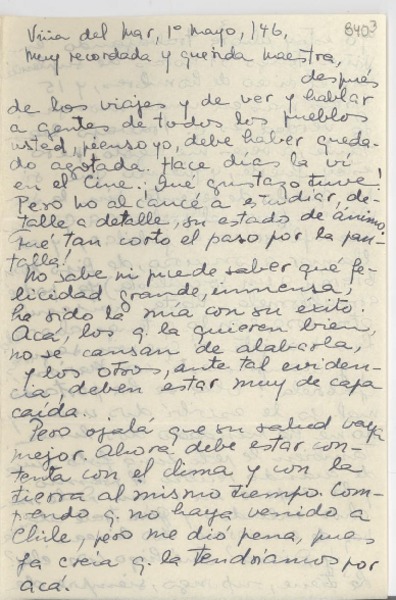 8403
Viña del Mar, 1º Mayo, 1946.
Muy recordada y querida maestra,
después
de los viajes y de ver y hablar
a gentes de todos los pueblos
usted, pienso yo, debe haber queda-
do agotada. Hace días la vi
en el Cine. ¡Qué gustazo tuve!
Pero no alcancé a estudiar, de-
talle a detalle, su estado de ánimo.
Fué tan corto el paso por la pan-
talla!
No sabe ni puede saber qué fe-
licidad grande, inmensa,
ha sido la mía con su éxito.
Acá, los q. la quieren bien,
no se cansan de alabarla,
y los otros, ante tal eviden-
cia, deben estar muy de capa
caída.
Pero ojalá que su salud vaya
mejor. Ahora debe estar con-
tenta con el clima y con la
tierra al mismo tiempo. Com-
prendo q. no haya venido a
Chile, pero me dió pena, pues
ya creía q. la tendríamos por
acá.